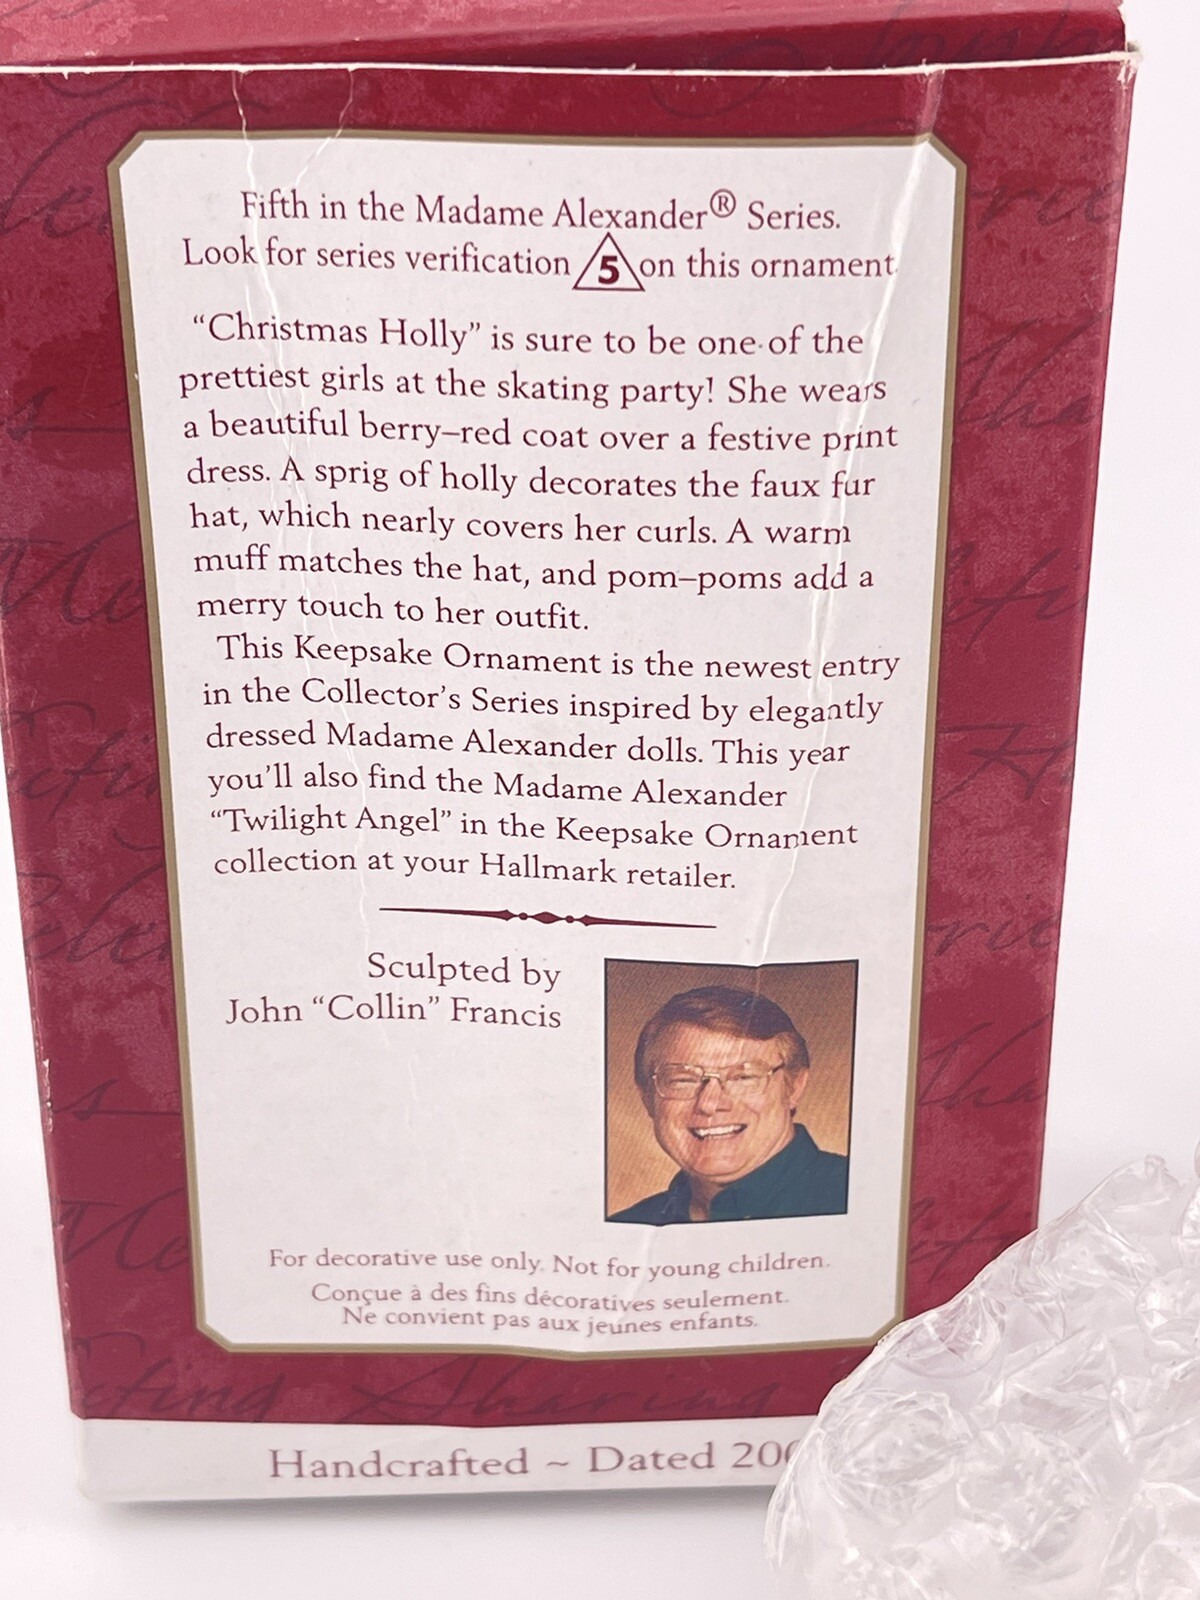 Fifth in the Madame Alexander® Series.
Look for series verification 5 on this ornament.
“Christmas Holly” is sure to be one of the
prettiest girls at the skating party! She wears
a beautiful berry–red coat over a festive print
dress. A sprig of holly decorates the faux fur
hat, which nearly covers her curls. A warm
muff matches the hat, and pom–poms add a
merry touch to her outfit.
This Keepsake Ornament is the newest entry
in the Collector’s Series inspired by elegantly
dressed Madame Alexander dolls. This year
you’ll also find the Madame Alexander
“Twilight Angel” in the Keepsake Ornament
collection at your Hallmark retailer.
Sculpted by
John “Collin” Francis
For decorative use only. Not for young children.
Conçue à des fins décoratives seulement.
Ne convient pas aux jeunes enfants.
Sharing
Handcrafted ~ Dated 200